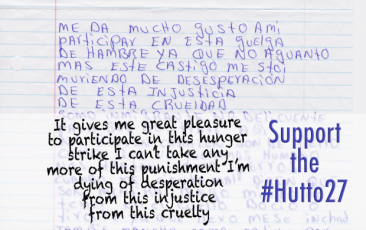 ME DA MUCHO GUSTO AMi
PARTiCiPAR EN ESTA guElgA
DE HAMBRE YA QUE NO AGUANTO
MAS ESTE CASTigo ME STOi
MURiENDO DE DESESPERACiON
DE ESTA iNJUSTiCiA
DE ESTA CRUEIDAD
It gives me great pleasure
to participate in this hunger
strike I can't take any
more of this punishment I'm
dying of desperation
from this injustice
from this cruelty
Support
the
#Hutto27